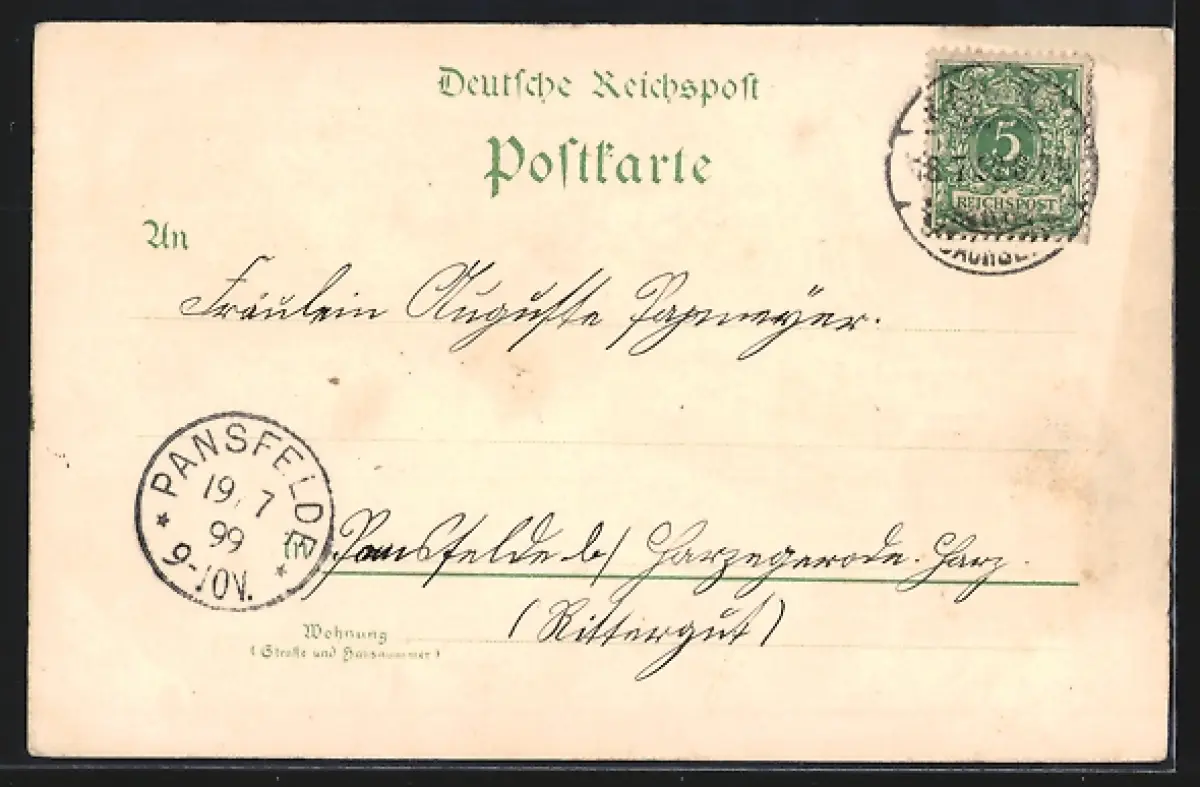 Deutsche Reichspost
Postkarte
5
REICHSPOST
An
Fräulein Auguste Papmeyer.
PANSFELDE
19. 7
99
9-10V.
in Pansfelde b/ Harzgerode. Harz.
(Rittergut)
Wohnung
(Straße und Hausnummer)